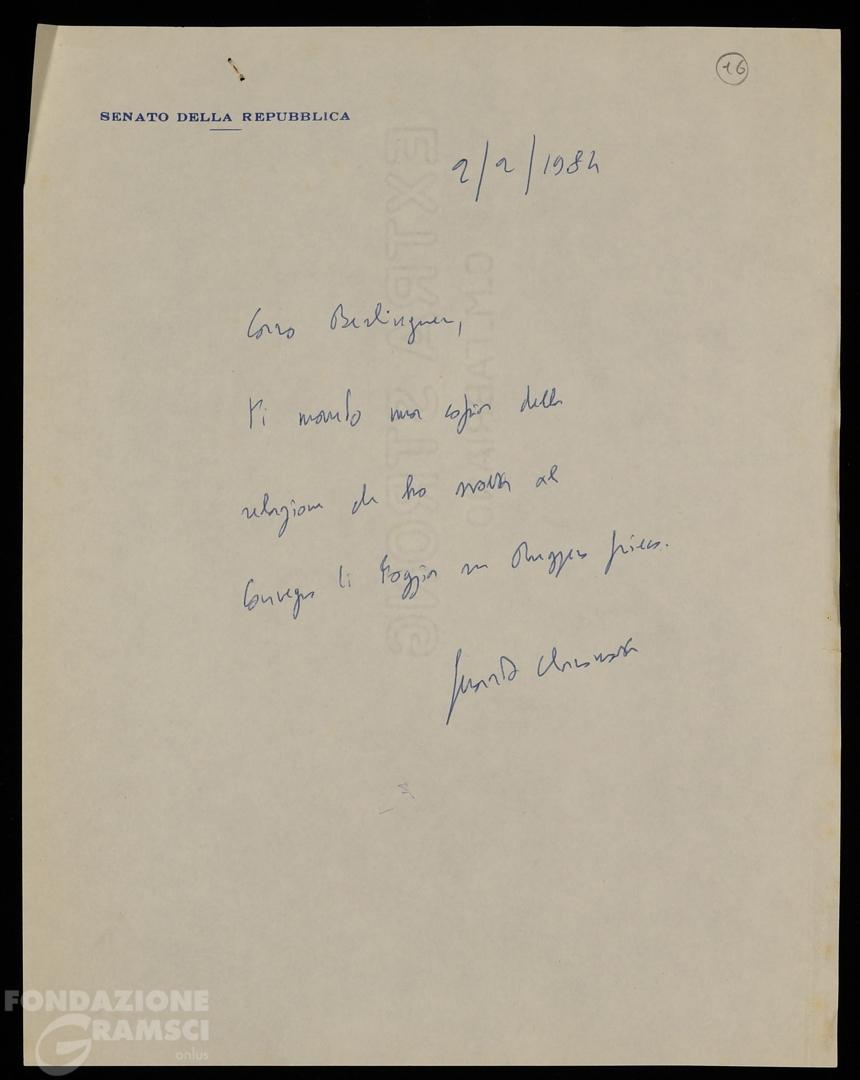 16
SENATO DELLA REPUBBLICA
2/2/1984
Caro Berlinguer,
Ti mando una copia della
relazione che ho svolta al
Convegno di Foggia su Ruggero Grieco.
Gerardo Chiaromonte
EXTRA STRONG
C.M. FABRIANO
FONDAZIONE
GRAMSCI
onlus